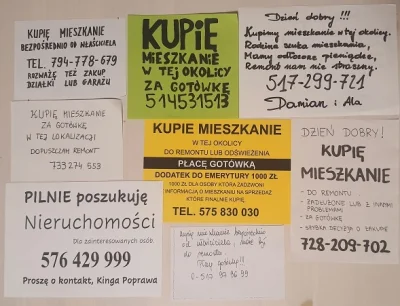 KUPIĘ MIESZKANIE
BEZPOŚREDNIO OD WŁAŚCICIELA
TEL. 794-778-679
ROZWAŻĘ TEŻ ZAKUP
DZIAŁKI LUB GARAŻU
KUPIĘ
MIESZKANIE
W TEJ OKOLICY
ZA GOTÓWKĘ
514531513
Dzień dobry !!!
Kupimy mieszkanie w tej okolicy.
Rodzina szuka mieszkania,
Mamy odłożone pieniądze,
Remont nam nie straszny.
517-299-721
Damian i Ala
KUPIĘ MIESZKANIE
ZA GOTÓWKĘ
W TEJ LOKALIZACJI
DOPUSZCZAM REMONT
733 274 553
KUPIE MIESZKANIE
W TEJ OKOLICY
DO REMONTU LUB ODŚWIEŻENIA
PŁACĘ GOTÓWKĄ
DODATEK DO EMERYTURY 1000 ZŁ
1000 ZŁ DLA OSOBY KTÓRA ZADZWONI
INFORMACJĄ O MIESZKANIU NA SPRZEDAŻ
KTÓRE FINALNIE KUPIĘ.
TEL. 575 830 030
DZIEŃ DOBRY!
KUPIĘ
MIESZKANIE
- DO REMONTU
- ZADŁUŻONE LUB Z INNYMI
PROBLEMAMI
- ZA GOTÓWKĘ
- SZYBKA DECYZJA O ZAKUPIE
728-209-702
PILNIE poszukuję
Nieruchomości
Dla zainteresowanych osób
576 429 999
Proszę o kontakt, Kinga Poprawa
Kupię mieszkanie bezpośrednio
od właściciela, może być
do remontu